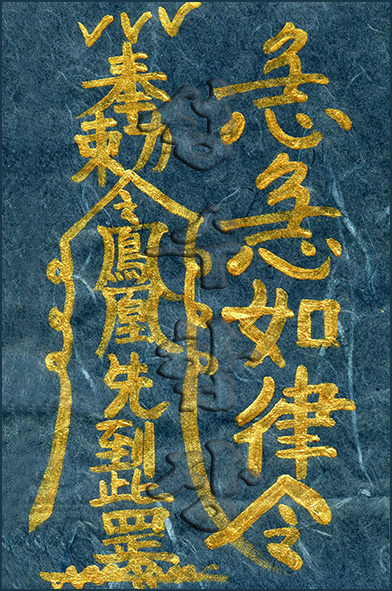 急急如律令
奉勅令鳳凰先到此罡